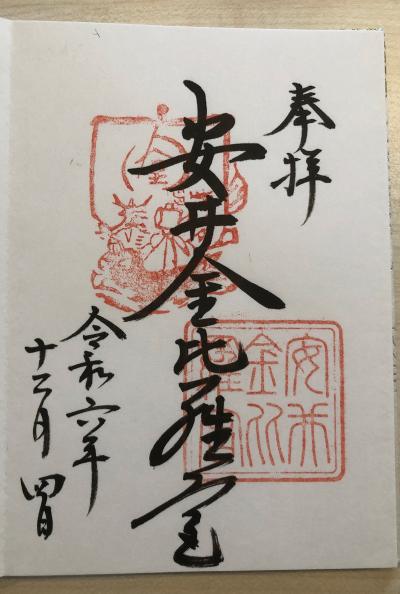 奉拝
安井金比羅宮
令和六年
十二月四日
安井
金比
羅宮